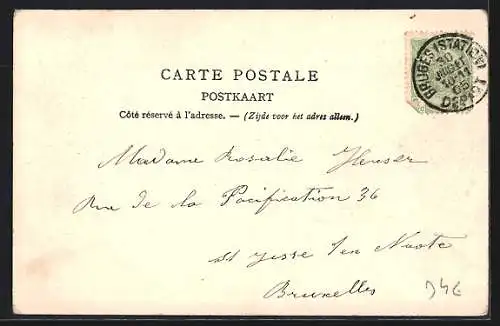 CARTE POSTALE
POSTKAART
Côté réservé à l'adresse. — (Zijde voor het adres alleen.)
BRUGES (STATION)
30
10-11
DEPART
Madame Rosalie Heuser
Rue de la Pacification 36
St Josse ten Noote
Bruxelles